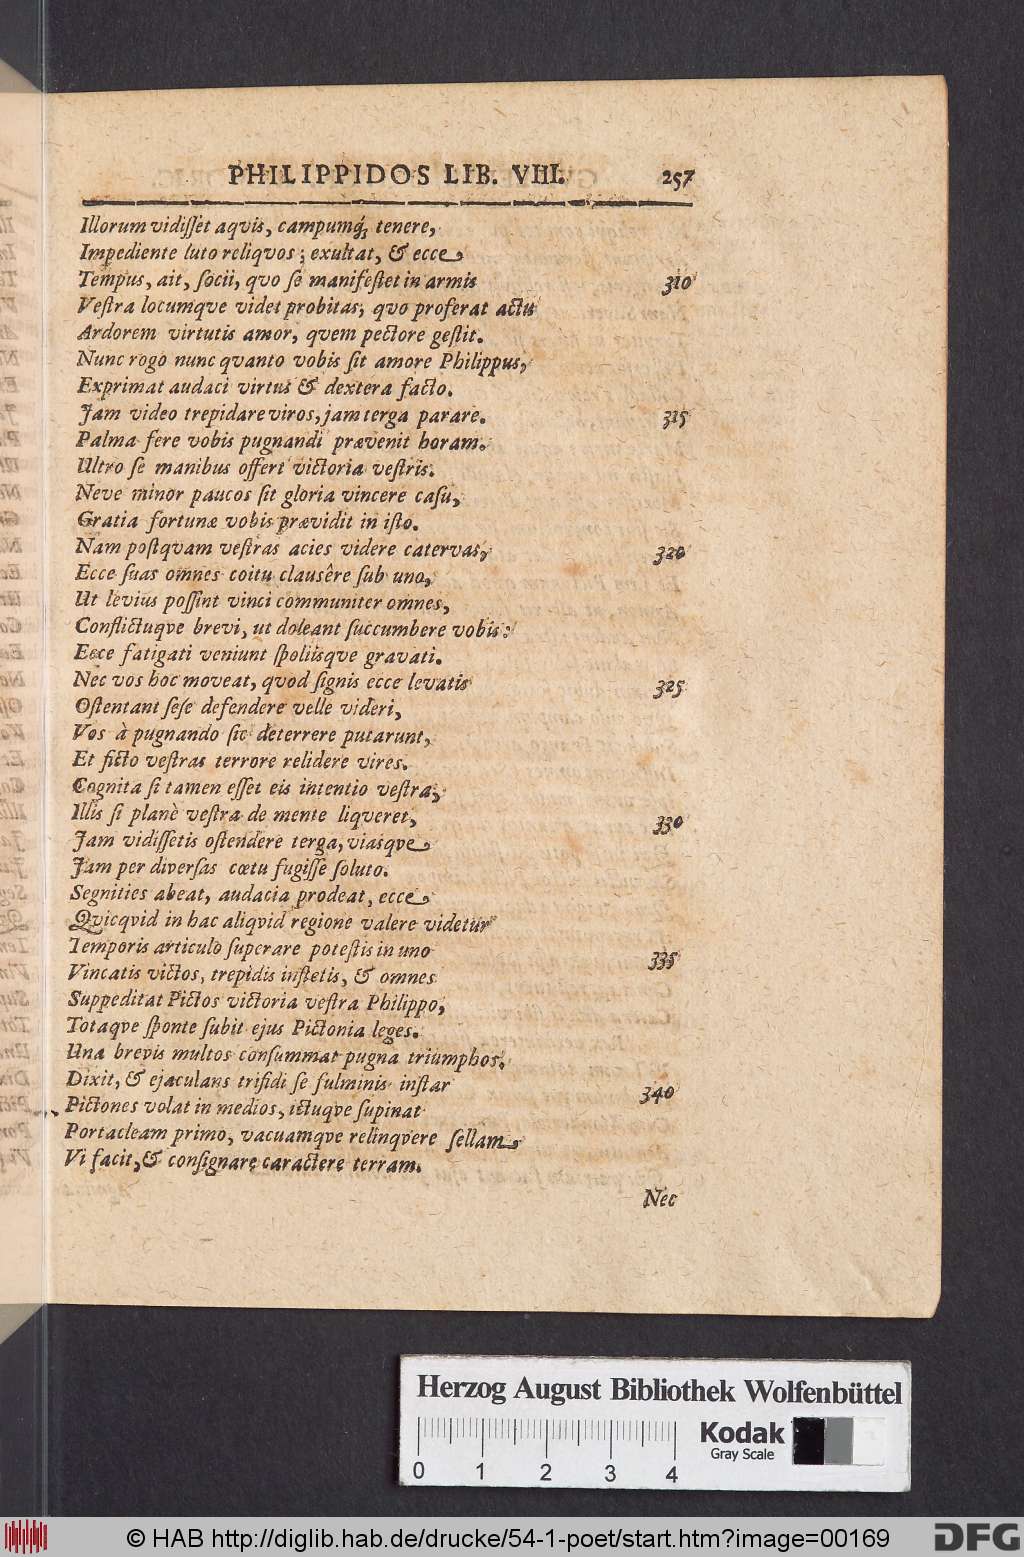 PHILIPPIDOS LIB. VIII. 257
Illorum vidiſſet aqvis, campumq́; tenere,
Impediente luto reliqvos; exultat, & ecce
Tempus, ait, ſocii, qvo ſe manifeſtet in armis 310
Veſtra locumqve videt probitas; qvo proferat actu
Ardorem virtutis amor, qvem pectore geſtit.
Nunc rogo nunc qvanto vobis ſit amore Philippus,
Exprimat audaci virtus & dextera facto.
Jam video trepidare viros, jam terga parare. 315
Palma fere vobis pugnandi prævenit horam.
Ultro ſe manibus offert victoria veſtris.
Neve minor paucos ſit gloria vincere caſu,
Gratia fortunæ vobis prævidit in iſto.
Nam poſtqvam veſtras acies videre catervas, 320
Ecce ſuas omnes coitu clausêre ſub uno,
Ut levius poſſint vinci communiter omnes,
Conflictuqve brevi, ut doleant ſuccumbere vobis:
Ecce fatigati veniunt ſpoliisqve gravati.
Nec vos hoc moveat, quod ſignis ecce levatis 325
Oſtentant ſeſe defendere velle videri,
Vos à pugnando ſic deterrere putarunt,
Et ficto veſtras terrore relidere vires.
Cognita ſi tamen eſſet eis intentio veſtra,
Illis ſi planè veſtra de mente liqveret, 330
Jam vidiſſetis oſtendere terga, viasqve
Jam per diverſas cœtu fugiſſe ſoluto.
Segnities abeat, audacia prodeat, ecce
Qvicqvid in hac aliqvid regione valere videtur
Temporis articulo ſuperare poteſtis in uno 335
Vincatis victos, trepidis inſtetis, & omnes
Suppeditat Pictos victoria veſtra Philippo,
Totaqve ſponte ſubit ejus Pictonia leges.
Una brevis multos conſummat pugna triumphos.
Dixit, & ejaculans trifidi ſe fulminis inſtar 340
Pictones volat in medios, ictuqve ſupinat
Portacleam primo, vacuamqve relinqvere ſellam
Vi facit, & conſignare caractere terram.
Nec
Herzog August Bibliothek Wolfenbüttel
Kodak
Gray Scale
0 1 2 3 4
© HAB http://diglib.hab.de/drucke/54-1-poet/start.htm?image=00169
DFG